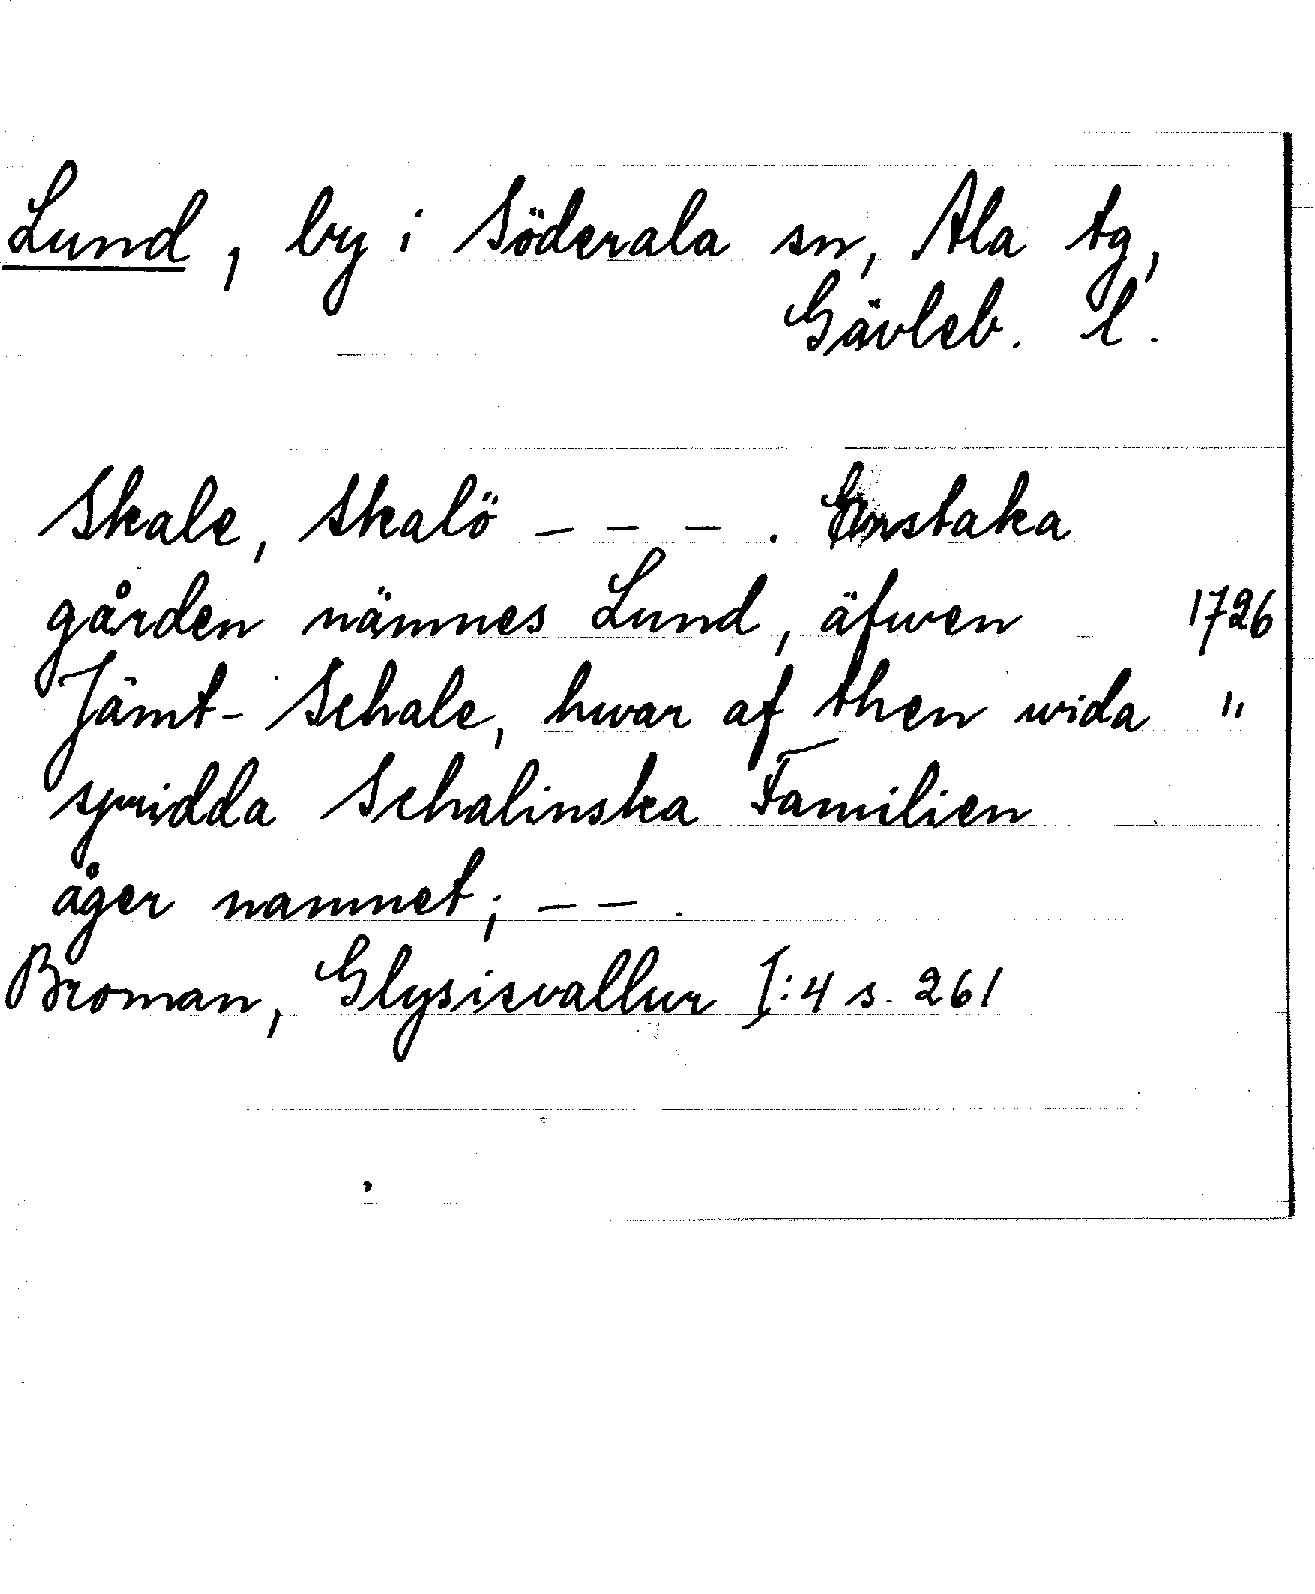 Lund, by i Söderala sn, Ala tg,
Gävleb. l.
Skale, Skalö - - - . Enstaka
gården nämnes Lund, äfwen 1726
Jämt-Schale, hwar af then wida "
spridda Schalinska Familien
äger namnet; - - .
Broman, Glysisvallur I:4 s. 261